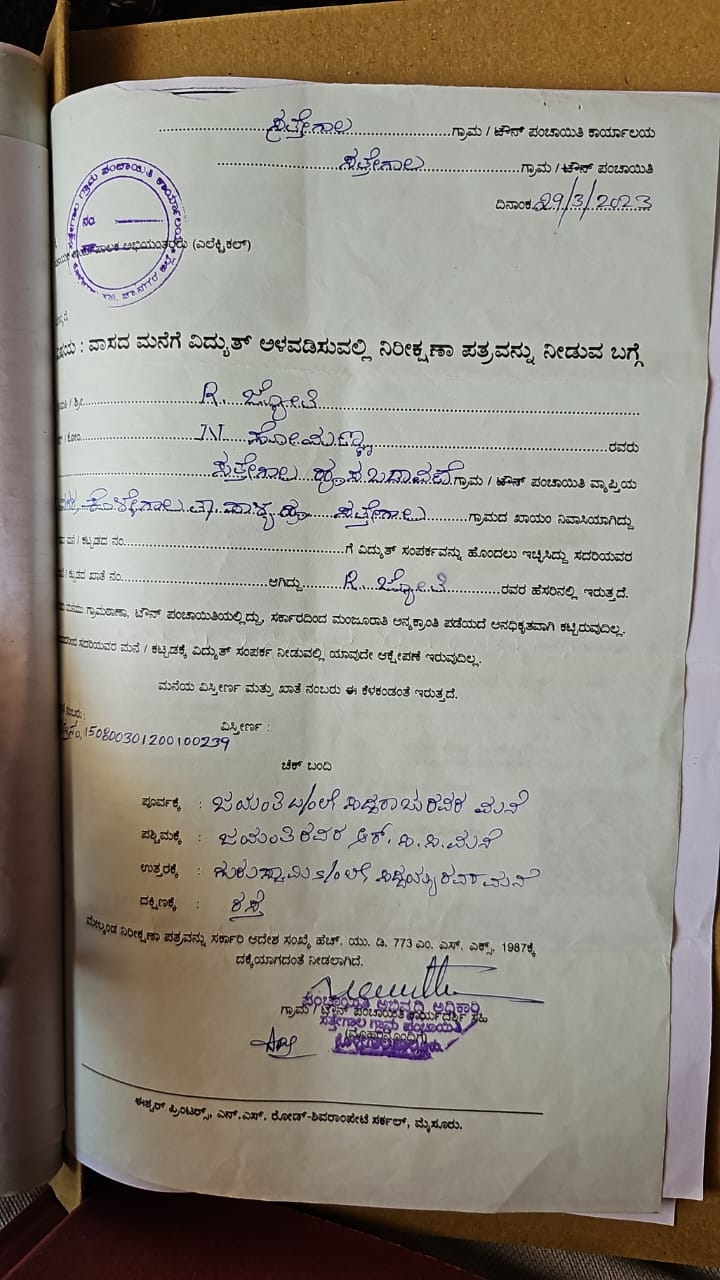 ಸತ್ತೇಗಾಲ ಗ್ರಾಮ / ಟೌನ್ ಪಂಚಾಯಿತಿ ಕಾರ್ಯಾಲಯ
ಸತ್ತೇಗಾಲ ಗ್ರಾಮ / ಟೌನ್ ಪಂಚಾಯಿತಿ
ದಿನಾಂಕ 29/3/2023
ನಂ
(ಎಲೆಕ್ಟ್ರಿಕಲ್)
: ವಾಸದ ಮನೆಗೆ ವಿದ್ಯುತ್ ಅಳವಡಿಸುವಲ್ಲಿ ನಿರೀಕ್ಷಣಾ ಪತ್ರವನ್ನು ನೀಡುವ ಬಗ್ಗೆ
/ ಶ್ರೀ R. ಜ್ಯೋತಿ
/ ಕೋಂ N. ಸೋಮಣ್ಣ ರವರು
ಸತ್ತೇಗಾಲ ಹೊಸ ಬಡಾವಣೆ ಗ್ರಾಮ / ಟೌನ್ ಪಂಚಾಯಿತಿ ವ್ಯಾಪ್ತಿಯ
ಕೊಳ್ಳೇಗಾಲ ತಾ ಸತ್ತೇಗಾಲ ಗ್ರಾಮದ ಖಾಯಂ ನಿವಾಸಿಯಾಗಿದ್ದು
ಮನೆ / ಕಟ್ಟಡದ ನಂ ಗೆ ವಿದ್ಯುತ್ ಸಂಪರ್ಕವನ್ನು ಹೊಂದಲು ಇಚ್ಛಿಸಿದ್ದು ಸದರಿಯವರ
/ ಕಟ್ಟಡದ ಖಾತೆ ನಂ ಆಗಿದ್ದು R. ಜ್ಯೋತಿ ರವರ ಹೆಸರಿನಲ್ಲಿ ಇರುತ್ತದೆ.
ಮನೆಯು ಗ್ರಾಮಠಾಣಾ, ಟೌನ್ ಪಂಚಾಯಿತಿಯಲ್ಲಿದ್ದು, ಸರ್ಕಾರದಿಂದ ಮಂಜೂರಾತಿ ಅನ್ಯಕ್ರಾಂತಿ ಪಡೆಯದೆ ಅನಧಿಕೃತವಾಗಿ ಕಟ್ಟಿರುವುದಿಲ್ಲ.
ಸದರಿಯವರ ಮನೆ / ಕಟ್ಟಡಕ್ಕೆ ವಿದ್ಯುತ್ ಸಂಪರ್ಕ ನೀಡುವಲ್ಲಿ ಯಾವುದೇ ಆಕ್ಷೇಪಣೆ ಇರುವುದಿಲ್ಲ.
ಮನೆಯ ವಿಸ್ತೀರ್ಣ ಮತ್ತು ಖಾತೆ ನಂಬರು ಈ ಕೆಳಕಂಡಂತೆ ಇರುತ್ತದೆ.
ನಂಬರು : ವಿಸ್ತೀರ್ಣ :
150800301200100239
ಚೆಕ್ ಬಂದಿ
ಪೂರ್ವಕ್ಕೆ : ಜಯಂತಿ ಸಿದ್ದರಾಜುರವರ ಮನೆ
ಪಶ್ಚಿಮಕ್ಕೆ : ಜಯಂತಿರವರ ಆರ್.ಸಿ.ಸಿ.ಮನೆ
ಉತ್ತರಕ್ಕೆ : ಗುರುಸ್ವಾಮಿ s/o ಲೇ ಸಿದ್ದಯ್ಯರವರ ಮನೆ
ದಕ್ಷಿಣಕ್ಕೆ : ರಸ್ತೆ
ಮೇಲ್ಕಂಡ ನಿರೀಕ್ಷಣಾ ಪತ್ರವನ್ನು ಸರ್ಕಾರಿ ಆದೇಶ ಸಂಖ್ಯೆ ಹೆಚ್. ಯು. ಡಿ. 773 ಎಂ. ಎಸ್. ಎಕ್ಸ್. 1987ಕ್ಕೆ
ದಕ್ಕೆಯಾಗದಂತೆ ನೀಡಲಾಗಿದೆ.
ಪಂಚಾಯಿತಿ ಅಭಿವೃದ್ಧಿ ಅಧಿಕಾರಿ
ಗ್ರಾಮ / ಟೌನ್ ಪಂಚಾಯಿತಿ ಕಾರ್ಯದರ್ಶಿ ಸಹಿ
ಸತ್ತೇಗಾಲ ಗ್ರಾಮ ಪಂಚಾಯಿತಿ
(ಮೊಹರಿನೊಂದಿಗೆ)
ಈಶ್ವರ್ ಪ್ರಿಂಟರ್ಸ್, ಎನ್.ಎಸ್. ರೋಡ್-ಶಿವರಾಂಪೇಟೆ ಸರ್ಕಲ್, ಮೈಸೂರು.